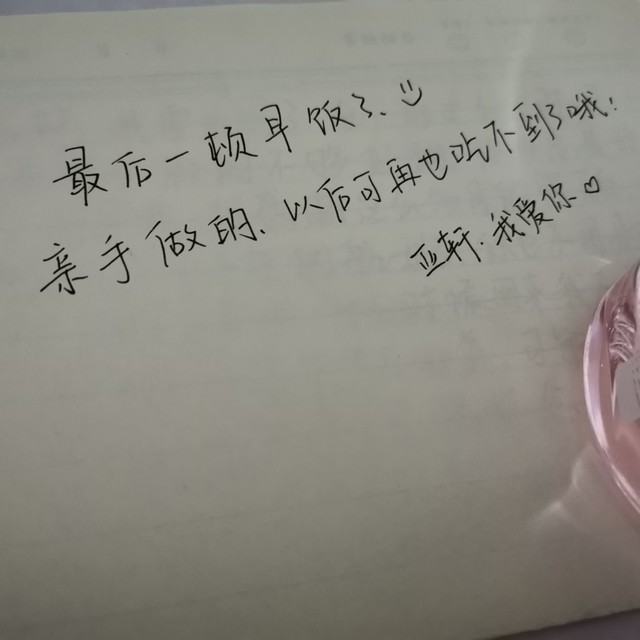 最后一顿早饭了、
亲手做的、以后可再也吃不到了哦！
亚轩、我爱你♡